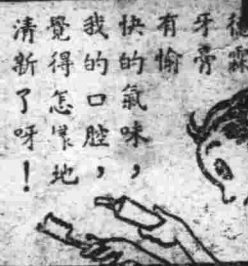 牙膏
有愉
快的氣味，
我的口腔，
覺得怎樣地
清新了呀！